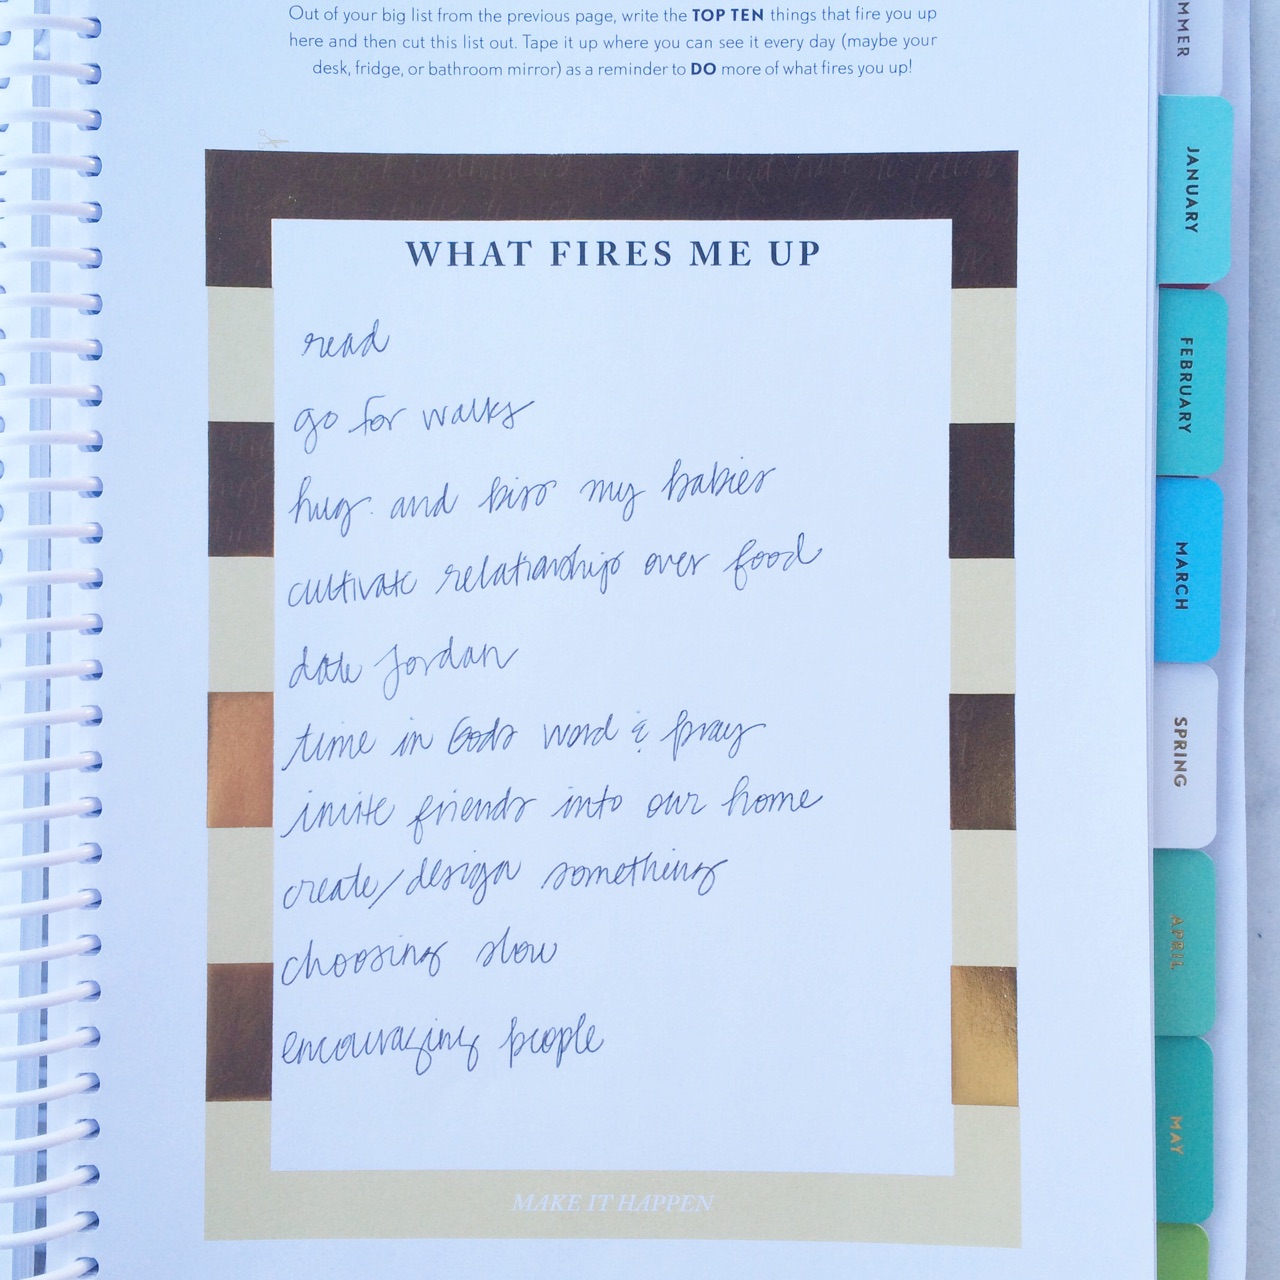 Out of your big list from the previous page, write the TOP TEN things that fire you up
here and then cut this list out. Tape it up where you can see it every day (maybe your
desk, fridge, or bathroom mirror) as a reminder to DO more of what fires you up!
WHAT FIRES ME UP
read
go for walks
hug and kiss my babies
cultivate relationships over food
date Jordan
time in Gods word & pray
invite friends into our home
create/design something
choosing slow
encouraging people
MAKE IT HAPPEN
MMER
JANUARY
FEBRUARY
MARCH
SPRING
APRIL
MAY